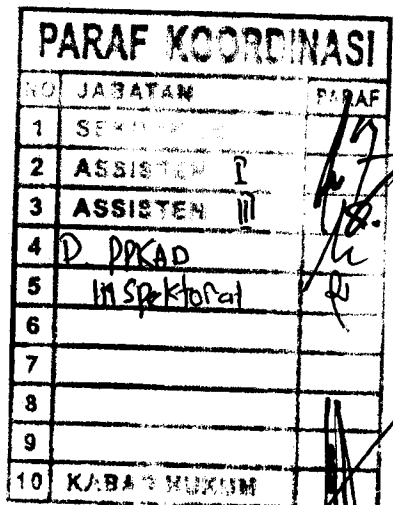 PARAF KOORDINASI
NO JABATAN PARAF
1
2 ASSISTEN I
3 ASSISTEN III
4 D. PPKAD
5 Inspektorat
6
7
8
9
10 KABAG HUKUM